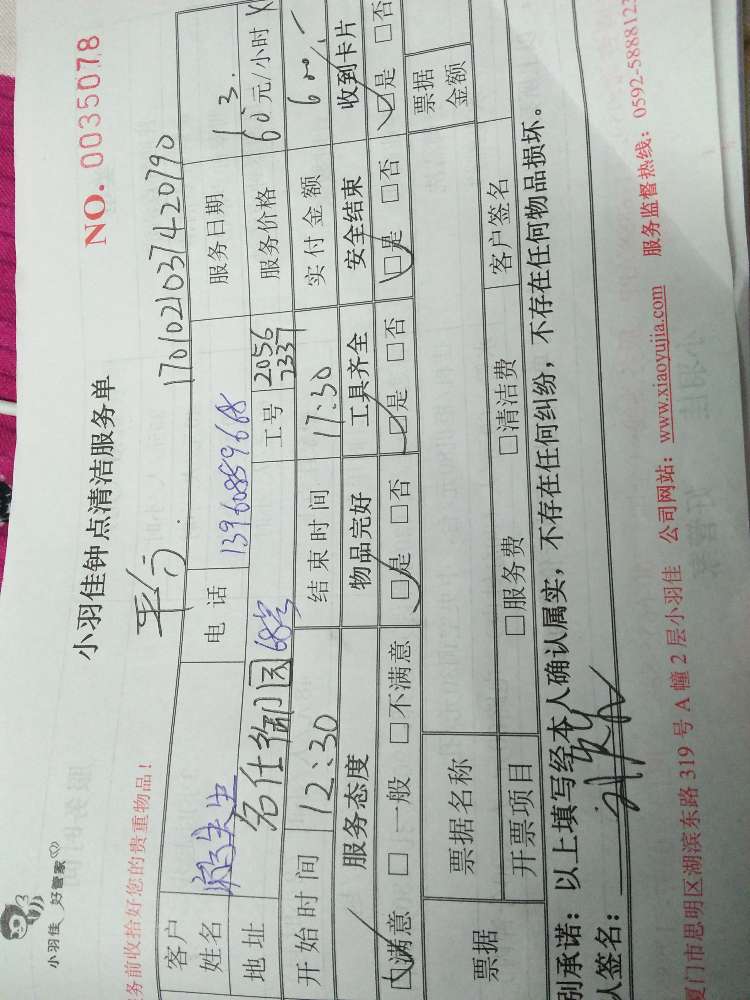 小羽佳 好管家
小羽佳钟点清洁服务单
NO. 0035078
务前收拾好您的贵重物品!
1701021037420790
客户姓名 先生 电话 13960859668 服务日期 1.3.
地址 名仕御园 68号 工号 2056 7337 服务价格 60元/小时
开始时间 12:30 结束时间 17:30 实付金额 600
服务态度 物品完好 工具齐全 安全结束 收到卡片
☑满意 □一般 □不满意 ☑是 □否 ☑是 □否 ☑是 □否 ☑是 □否
票据 票据名称 票据金额
开票项目 □服务费 □清洁费 客户签名
别承诺:以上填写经本人确认属实,不存在任何纠纷,不存在任何物品损坏。
人签名:
厦门市思明区湖滨东路 319 号 A 幢 2 层小羽佳 公司网站:www.xiaoyujia.com 服务监督热线:0592-5888123